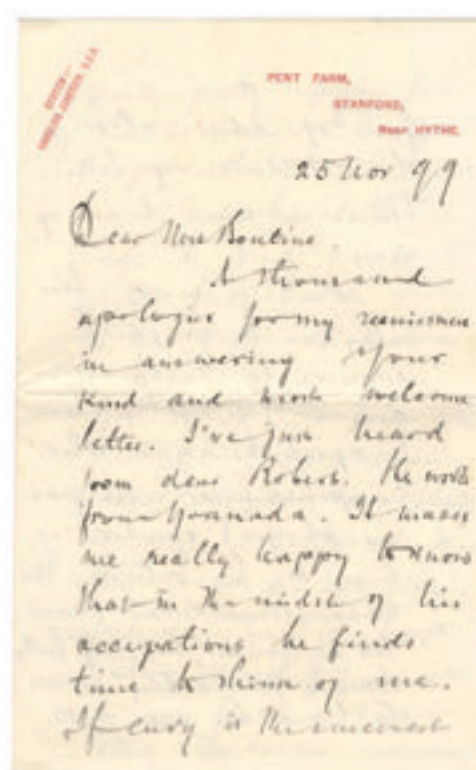 STATION—
SANDLING JUNCTION, S.E.R.
PENT FARM,
STANFORD,
Near HYTHE.
25 Nov 99
Dear Mrs Bontine
A thousand
apologies for my remissness
in answering your
kind and most welcome
letter. I've just heard
from dear Robert. He wrote
from Granada. It makes
me really happy to know
that in the midst of his
occupations he finds
time to think of me.
If envy is the sincerest